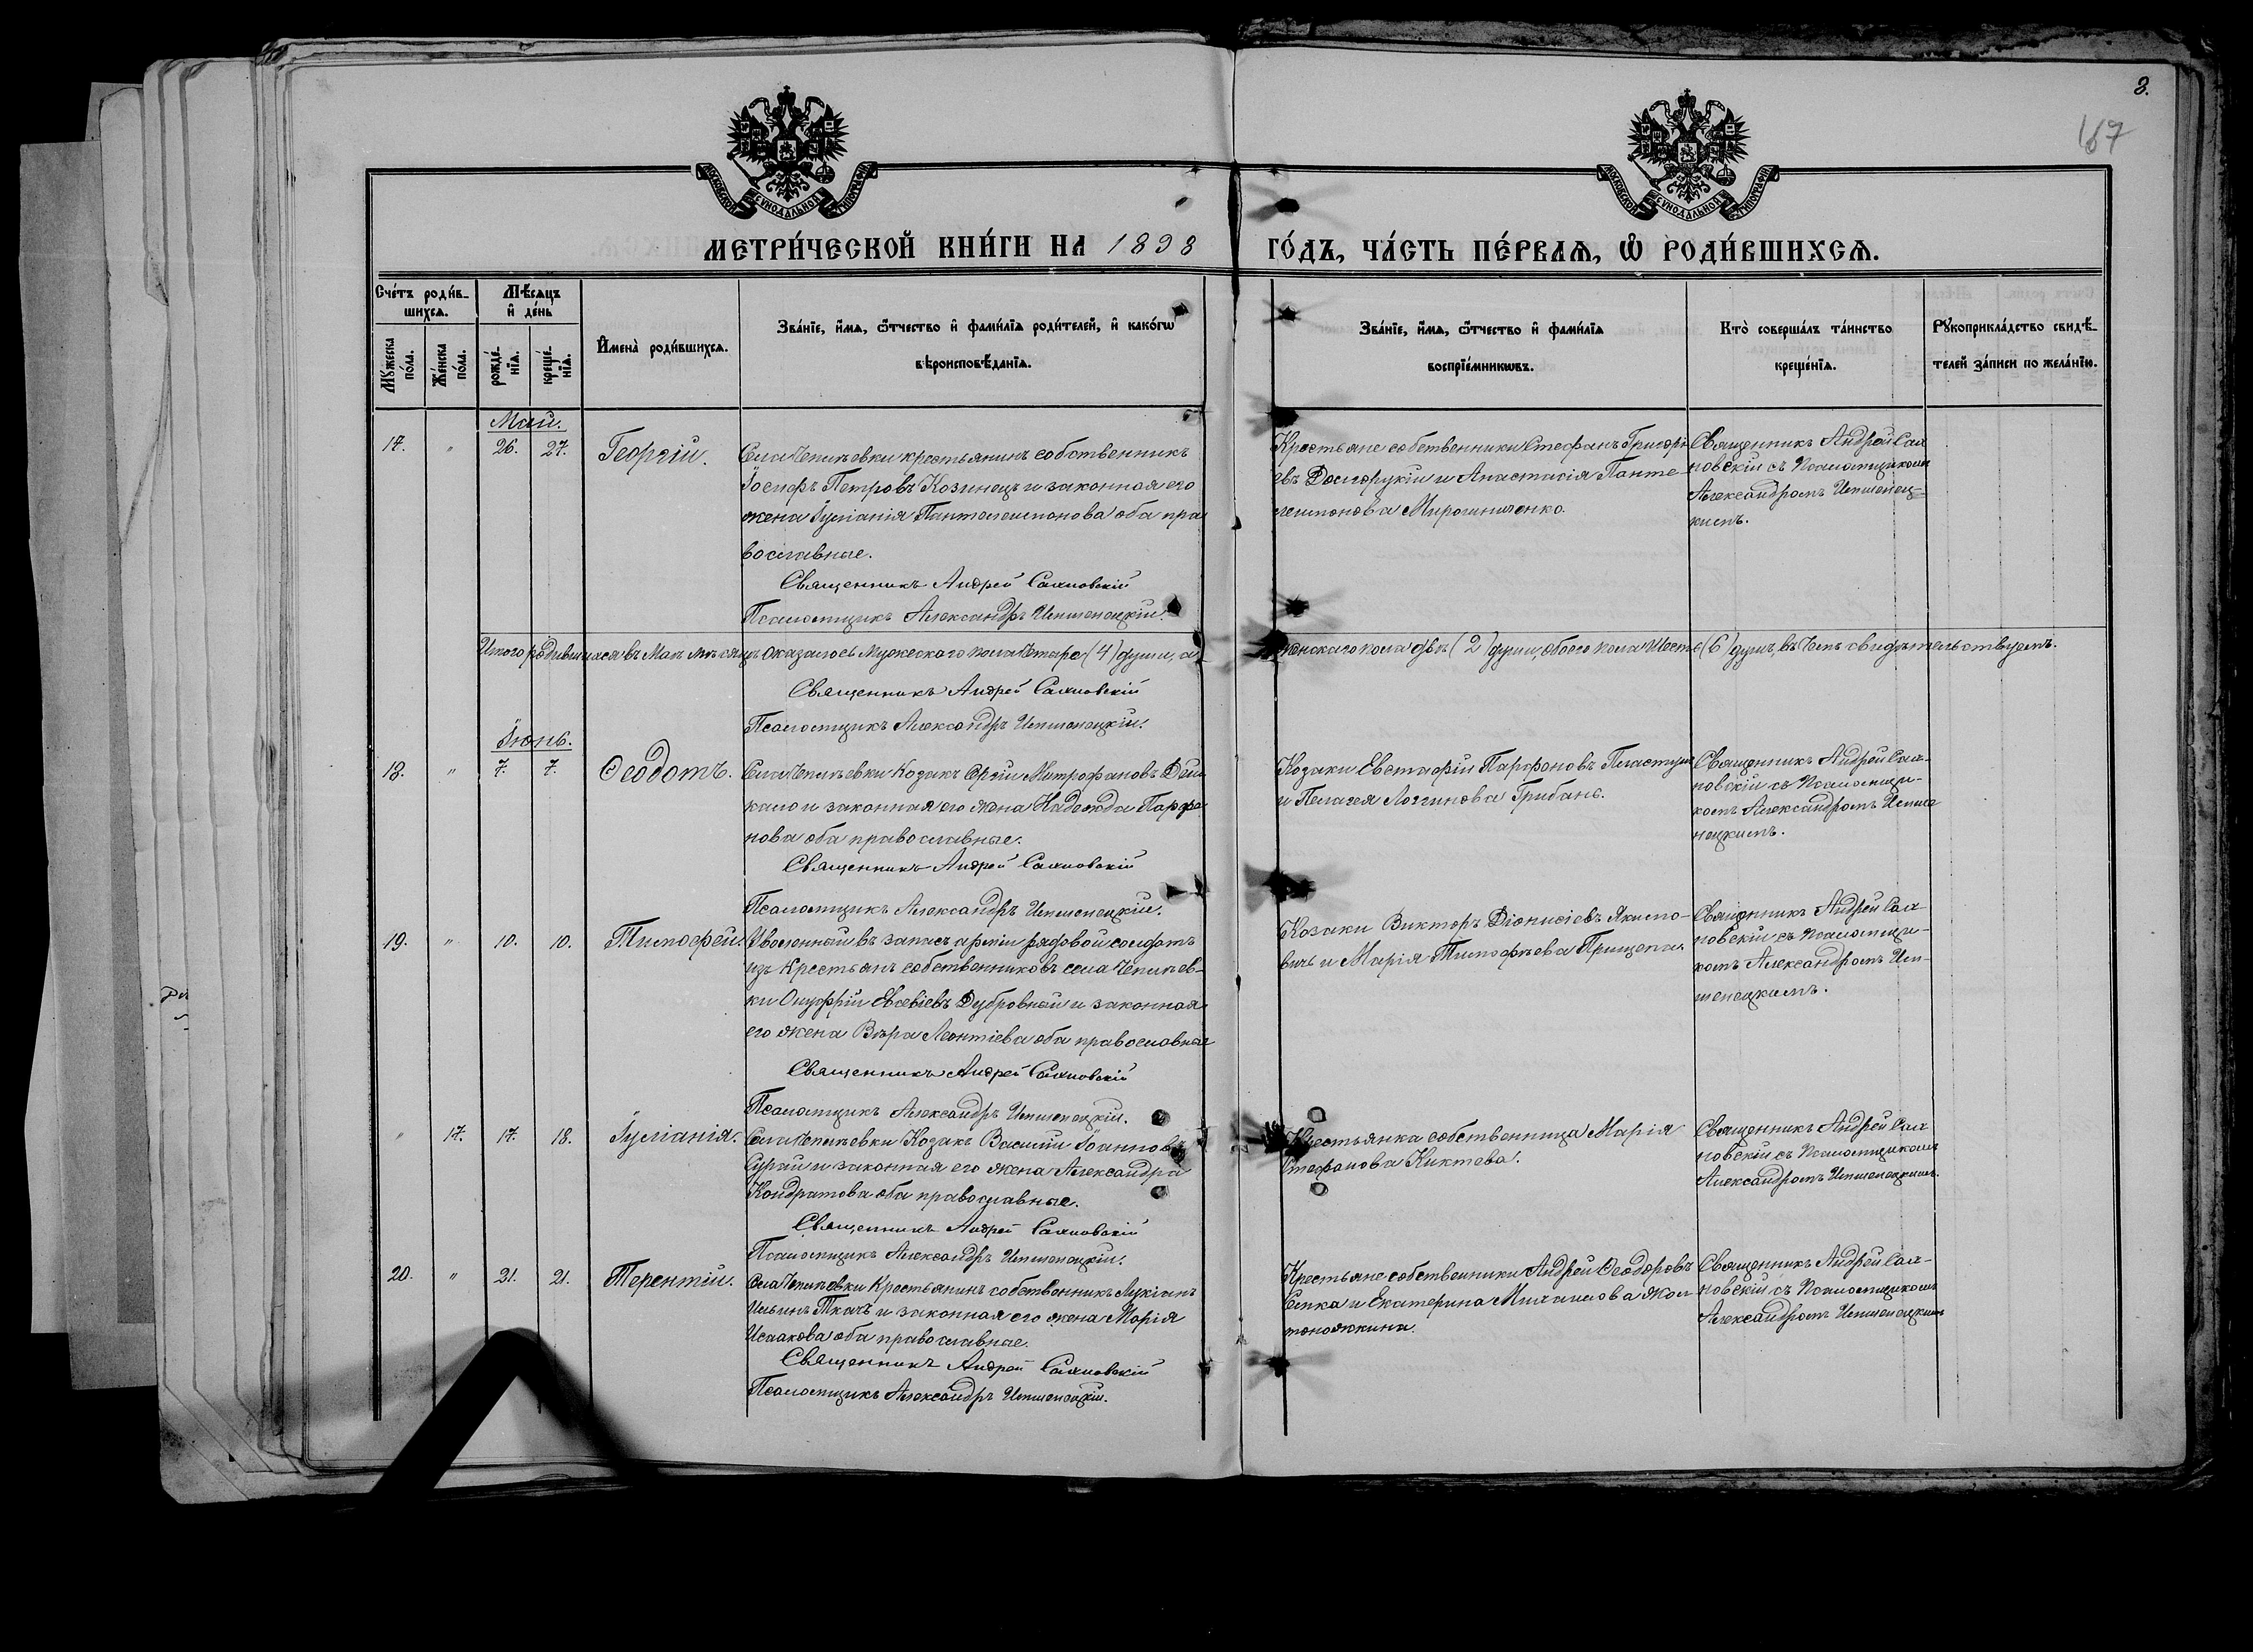 8.
167
МОСКОВСКОЙ СѴНОДАЛЬНОЙ ТИПОГРАФІИ
МОСКОВСКОЙ СѴНОДАЛЬНОЙ ТИПОГРАФІИ
МЕТРИ́ЧЕСКОЙ КНИ́ГИ НА 1898 ГО́ДЪ, ЧА́СТЬ ПЕ́РВАѦ, Ѡ РОДИ́ВШИХСѦ.
Сче́тъ роди́в-
шихсѧ.
Мѣ́сѧцъ
и҆ де́нь
Мꙋ́жеска
по́ла.
Же́нска
по́ла.
рожде́-
нїѧ.
креще́-
нїѧ.
И҆мена̀ роди́вшихсѧ.
Зва́нїе, и҆́мѧ, ѻ҆́тчество и҆ фами́лїѧ роди́телей, и҆ како́гѡ
вѣроисповѣ́данїѧ.
Зва́нїе, и҆́мѧ, ѻ҆́тчество и҆ фами́лїѧ
воспрїе́мникѡвъ.
Кто̀ соверша́лъ та́инство
креще́нїѧ.
Рꙋкоприкла́дство свидѣ́-
телей за́писи по жела́нїю.
Май.
17. " 26. 27. Георгій.
Села Чепиевки крестьянинъ собственникъ
Іосифъ Петровъ Козинецъ и законная его
жена Іуліанія Пантелеимонова оба пра
вославные.
Священникъ Андрей Саяновскій
Псаломщикъ Александръ
Крестьяне собственники Стефанъ Григорі
евъ Долгорукій и Анастасія Панте
леимонова Мирошниченко.
Священникъ Андрей Сая
новскій съ Псаломщикомъ
Александромъ
кимъ.
Итого родившихся въ Маѣ мѣсяцѣ оказалось Мужескаго пола Четыре (4) души, а женскаго пола двѣ (2) души, обоего пола Шесть (6) душъ, въ чемъ свидѣтельствуемъ.
Священникъ Андрей Саяновскій
Псаломщикъ Александръ
Іюнь.
18. " 7. 7. Ѳеодотъ.
Села Чепиевки Козакъ Митрофановъ
и законная его жена Надежда Парфе
нова оба православные.
Священникъ Андрей Саяновскій
Псаломщикъ Александръ
Козаки Евстафій Парфеновъ
и Пелагея Логгинова Грибань.
Священникъ Андрей Сая-
новскій съ Псаломщи-
комъ Александромъ
нецкимъ.
19. " 10. 10. Тимофей.
Уволенный въ запасъ арміи рядовой солдатъ
изъ Крестьянъ собственниковъ села Чепиев-
ки Онуфрій Евсевіевъ Дубровный и законная
его жена Вѣра Леонтіева оба православные
Священникъ Андрей Саяновскій
Псаломщикъ Александръ
Козаки Викторъ Діонисіевъ Якимо-
вичъ и Марія Тимофѣева Прищепа.
Священникъ Андрей Сая-
новскій съ Псаломщи-
комъ Александромъ
шенецкимъ.
" 17. 17. 18. Іуліанія.
Села Чепиевки Козакъ Василій Іоанновъ
Сурай и законная его жена Александра
Кондратова оба православные.
Священникъ Андрей Саяновскій
Псаломщикъ Александръ
Крестьянка собственница Марія
Стефанова Киктева.
Священникъ Андрей Сая
новскій съ Псаломщикомъ
Александромъ
20. " 21. 21. Терентій.
Села Чепиевки Крестьянинъ собственникъ Лукіанъ
Ильинъ Ткачъ и законная его жена Марія
Исаакова оба православные.
Священникъ Андрей Саяновскій
Псаломщикъ Александръ
Крестьяне собственники Андрей Ѳеодоровъ
Сепка и Екатерина Михаилова Жол
тоножкина.
Священникъ Андрей Сая-
новскій съ Псаломщикомъ
Александромъ